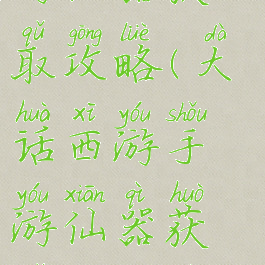 qǔ gōng lüè dà
取攻略(大
huà xī yóu shǒu
话西游手
yóu xiān qì huò
游仙器获